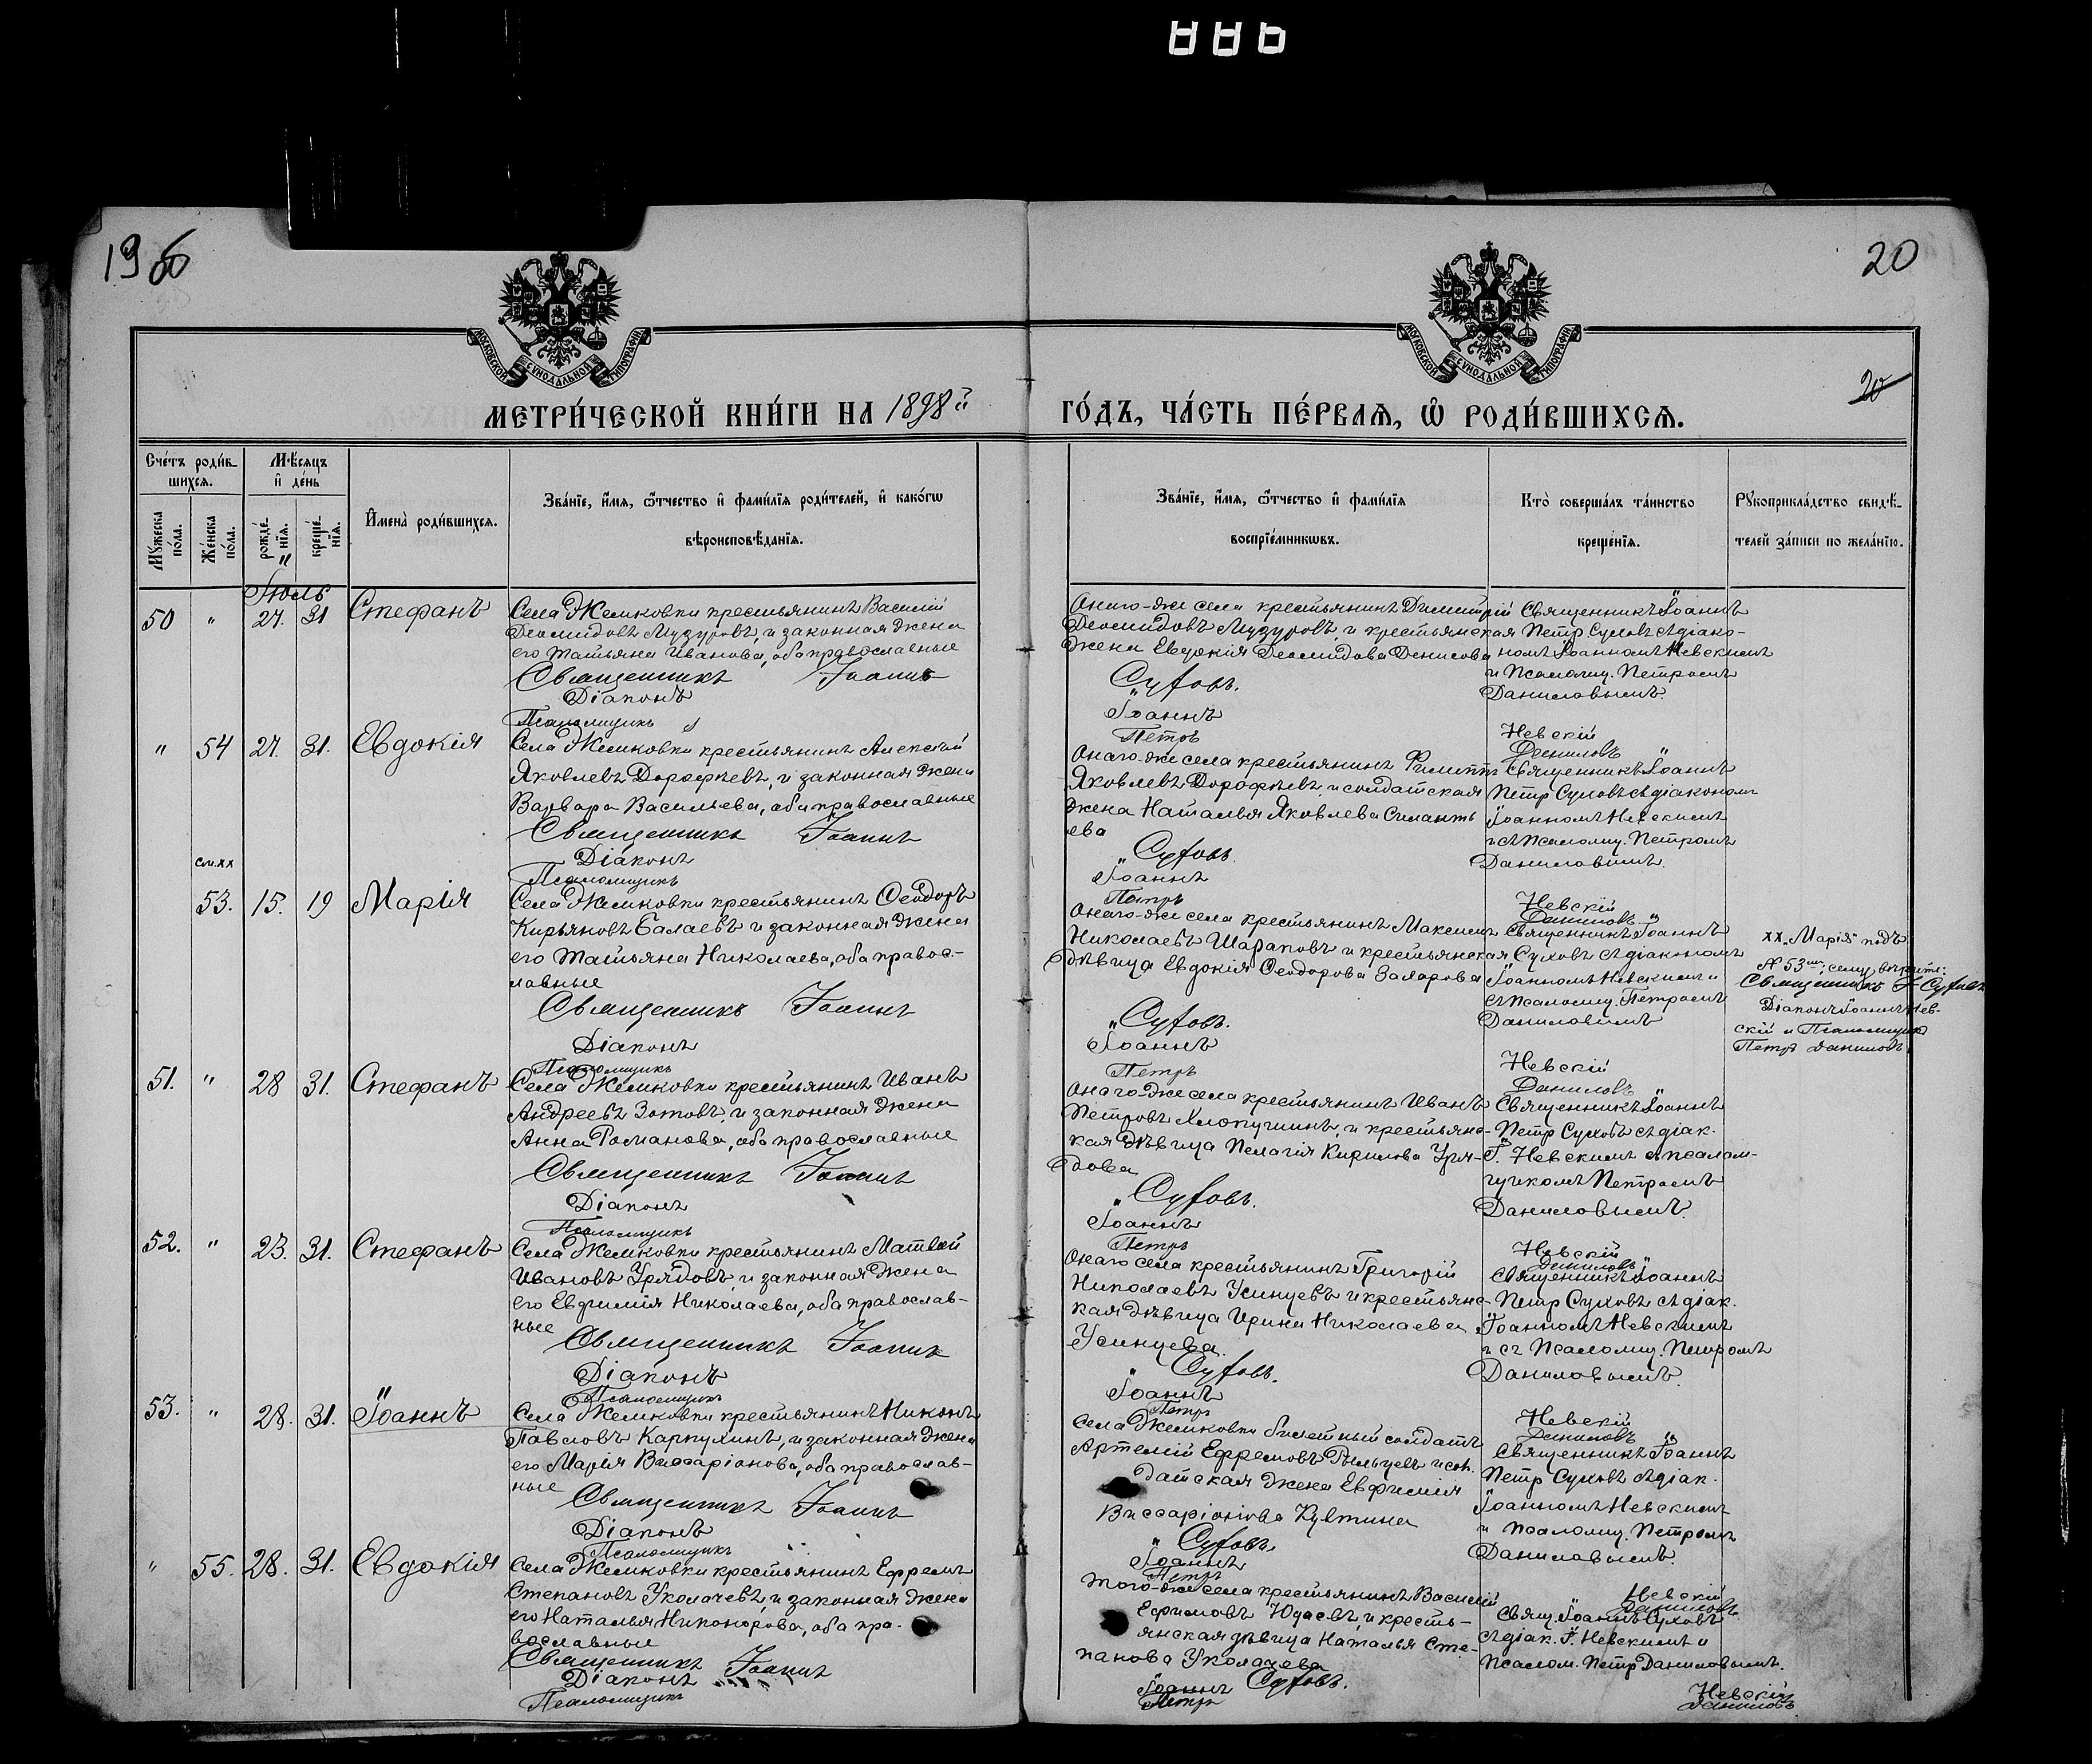 19 об
20
20
МОСКОВСКОЙ СѴНОДАЛЬНОЙ ТИПОГРАФІИ
МОСКОВСКОЙ СѴНОДАЛЬНОЙ ТИПОГРАФІИ
МЕТРИ́ЧЕСКОЙ КНИ́ГИ НА 1898й
ГО́ДЪ, ЧА́СТЬ ПЕ́РВАѦ, Ѡ҆ РОДИ́ВШИХСѦ.
Сче́тъ роди́в-
шихся.
Мѣ́сяцъ
и҆ де́нь
Мꙋ́жеска
по́ла.
Же́нска
по́ла.
рожде́-
нїя.
креще́-
нїя.
И҆мена̀ роди́вшихся.
Зва́нїе, и҆́мя, ѻ҆́тчество и҆ фами́лїя роди́телей, и҆ како́гѡ
вѣроисповѣ́данїя.
Зва́нїе, и҆́мя, ѻ҆́тчество и҆ фами́лїя
воспрїе́мникѡвъ.
Кто̀ соверша́лъ та́инство
креще́нїя.
Рꙋкоприкла́дство свидѣ́-
телей за́писи по жела́нїю.
Іюль
50 " 27. 31 Стефанъ
Села Жемковки крестьянинъ Василій
Деомидовъ Музуровъ, и законная жена
его Татьяна Иванова, оба православные
Священникъ Іоаннъ
Діаконъ
Псаломщикъ
Онаго-же села крестьянинъ Димитрій
Деомидовъ Музуровъ, и крестьянская
жена Евдокія Деомидова Денисова
" Суховъ.
Іоаннъ
Петръ
Священникъ Іоаннъ
Петр Суховъ съ діако-
номъ Іоанномъ Невскимъ
и псаломщ. Петромъ
Даниловымъ
Невскій
Даниловъ
" 54 27. 31. Евдокія
Села Жемковки крестьянинъ Алексѣй
Яковлевъ Дорофѣевъ, и законная жена
Варвара Васильева, оба православные
Священникъ Іоаннъ
Діаконъ
Псаломщикъ
Онаго-же села крестьянинъ Филиппъ
Яковлевъ Дорофѣевъ, и солдатская
жена Наталья Яковлева Силанть
ева
" Суховъ.
Іоаннъ
Петръ
Священникъ Іоаннъ
Петр Суховъ съ діакономъ
Іоанномъ Невскимъ
и съ псаломщ. Петромъ
Даниловымъ.
Невскій
Даниловъ
см. хх
53. 15. 19 Марія
Села Жемковки крестьянинъ Ѳеодоръ
Кирьяновъ Балаевъ и законная жена
его Татьяна Николаева, оба правос-
лавные
Священникъ Іоаннъ
Діаконъ
Псаломщикъ
Онаго-же села крестьянинъ Максимъ
Николаевъ Шараповъ и крестьянская
дѣвица Евдокія Ѳеодорова Захарова
" Суховъ.
Іоаннъ
Петръ
Священникъ Іоаннъ
Суховъ съ діакономъ
Іоанномъ Невскимъ и
съ псаломщ. Петромъ
Даниловымъ
Невскій
Даниловъ
хх „Марія" подъ
№ 53мъ; сему вѣрить:
Священникъ І. Суховъ
Діаконъ Іоаннъ Нев-
скій и Псаломщикъ
Петръ Даниловъ
51. " 28 31. Стефанъ
Села Жемковки крестьянинъ Иванъ
Андреевъ Зотовъ, и законная жена
Анна Романова, оба православные
Священникъ Іоаннъ
Діаконъ
Псаломщикъ
Онаго-же села крестьянинъ Иванъ
Петровъ Хлопушинъ, и крестьянс-
кая дѣвица Пелагія Кирилова Уря-
дова
" Суховъ.
Іоаннъ
Петръ
Священникъ Іоаннъ
Петр Суховъ съ діак.
І. Невскимъ и псалом-
щикомъ Петромъ
Даниловымъ.
Невскій
Даниловъ
52. " 23. 31. Стефанъ
Села Жемковки крестьянинъ Матвѣй
Ивановъ Урядовъ, и законная жена
его Евфимія Николаева, оба православ-
ные
Священникъ Іоаннъ
Діаконъ
Псаломщикъ
Онаго села крестьянинъ Григорій
Николаевъ Усинцевъ и крестьянс-
кая дѣвица Ирина Николаева
Усинцева.
" Суховъ.
Іоаннъ
Петръ
Священникъ Іоаннъ
Петр Суховъ съ діак.
Іоанномъ Невскимъ
и съ псаломщ. Петромъ
Даниловымъ.
Невскій
Даниловъ
53. " 28. 31. Іоаннъ
Села Жемковки крестьянинъ Никонъ
Павловъ Карпухинъ, и законная жена
его Марія Виссаріонова, оба православ-
ные
Священникъ Іоаннъ
Діаконъ
Псаломщикъ
Села Жемковки билетный солдатъ
Артемій Ефремовъ и сол.
датская жена Евфимія
Виссаріонова
" Суховъ.
Іоаннъ
Петръ
Священникъ Іоаннъ
Петр Суховъ съ діак.
Іоанномъ Невскимъ
и псаломщ. Петромъ
Даниловымъ.
Невскій
Даниловъ
" 55. 28. 31. Евдокія
Села Жемковки крестьянинъ Ефремъ
Степановъ Уколачевъ, и законная жена
его Наталья Никонорова, оба пра-
вославные
Священникъ Іоаннъ
Діаконъ
Псаломщикъ
Того-же села крестьянинъ Василій
Ефимовъ Юдаевъ, и кресть-
янская дѣвица Наталья Сте-
панова Уколачева
Іоаннъ Суховъ.
Петръ
Свящ. Іоаннъ Суховъ
съ діак. І. Невскимъ и
псалом. Петр Даниловымъ.
Невскій
Даниловъ